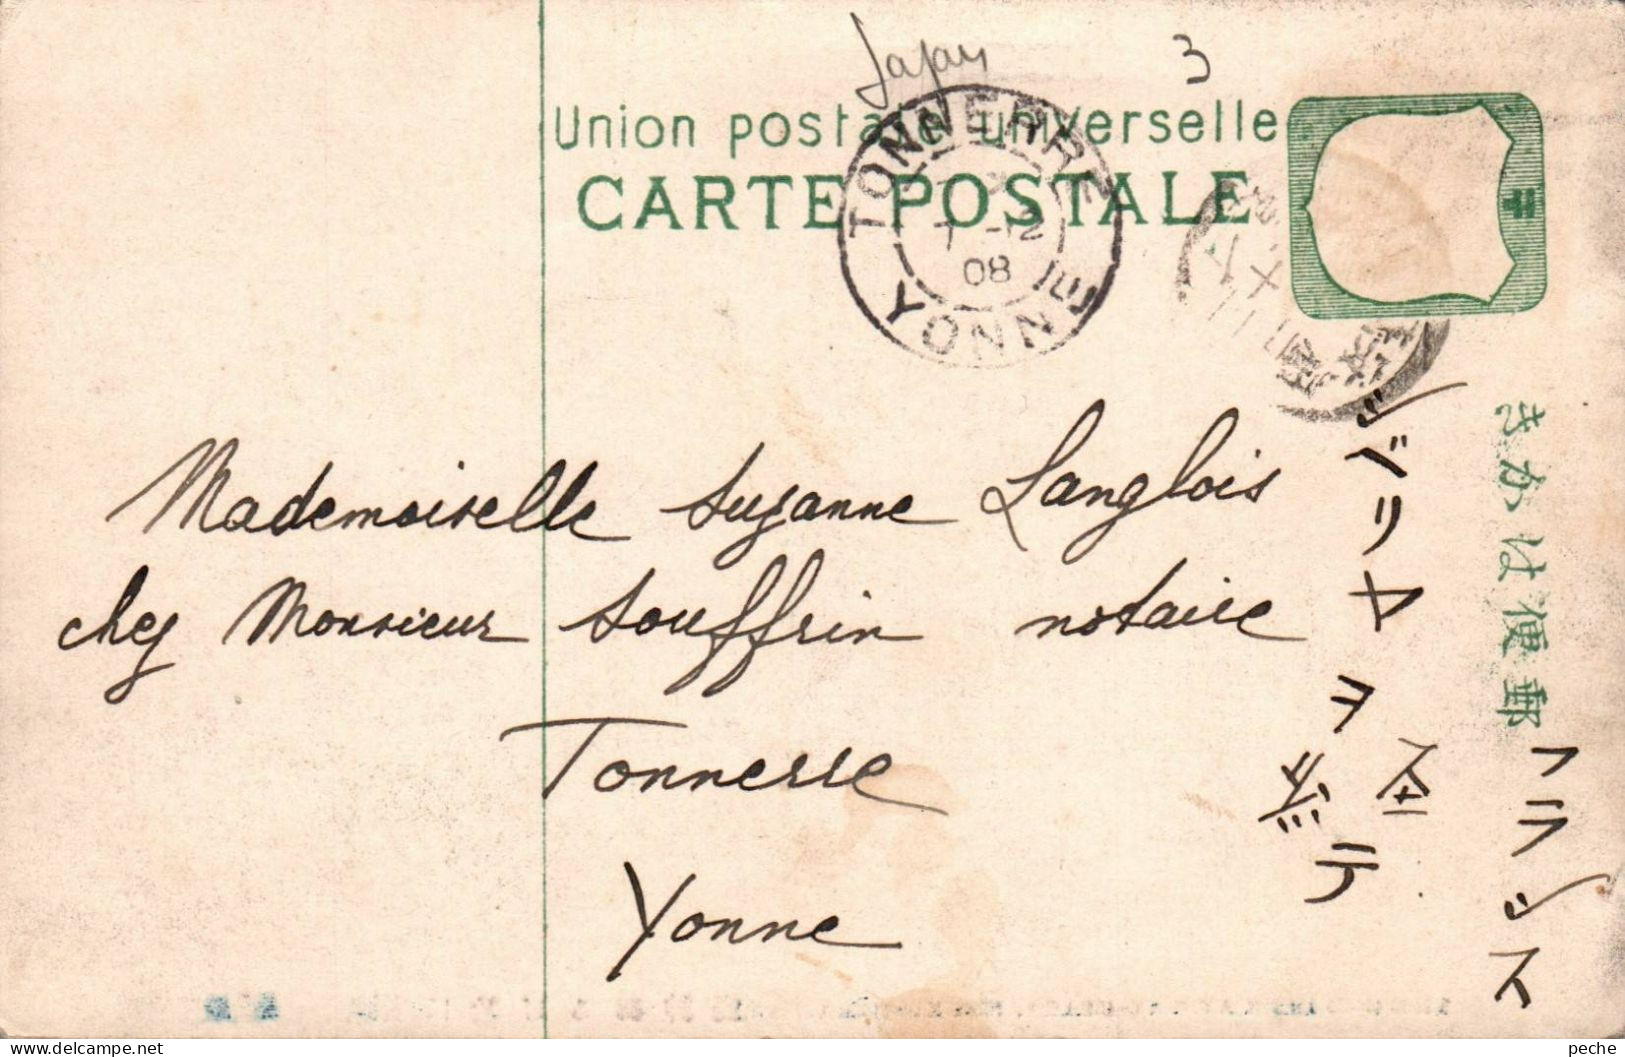 Japan
3
Union postale universelle
CARTE POSTALE
TONNERRE
7 -12
08
YONNE
Mademoiselle Suzanne Langlois
chez Monsieur Souffrin notaire
Tonnerre
Yonne
きかは便郵
フランス
シベリヤ
ヲ経テ
peche